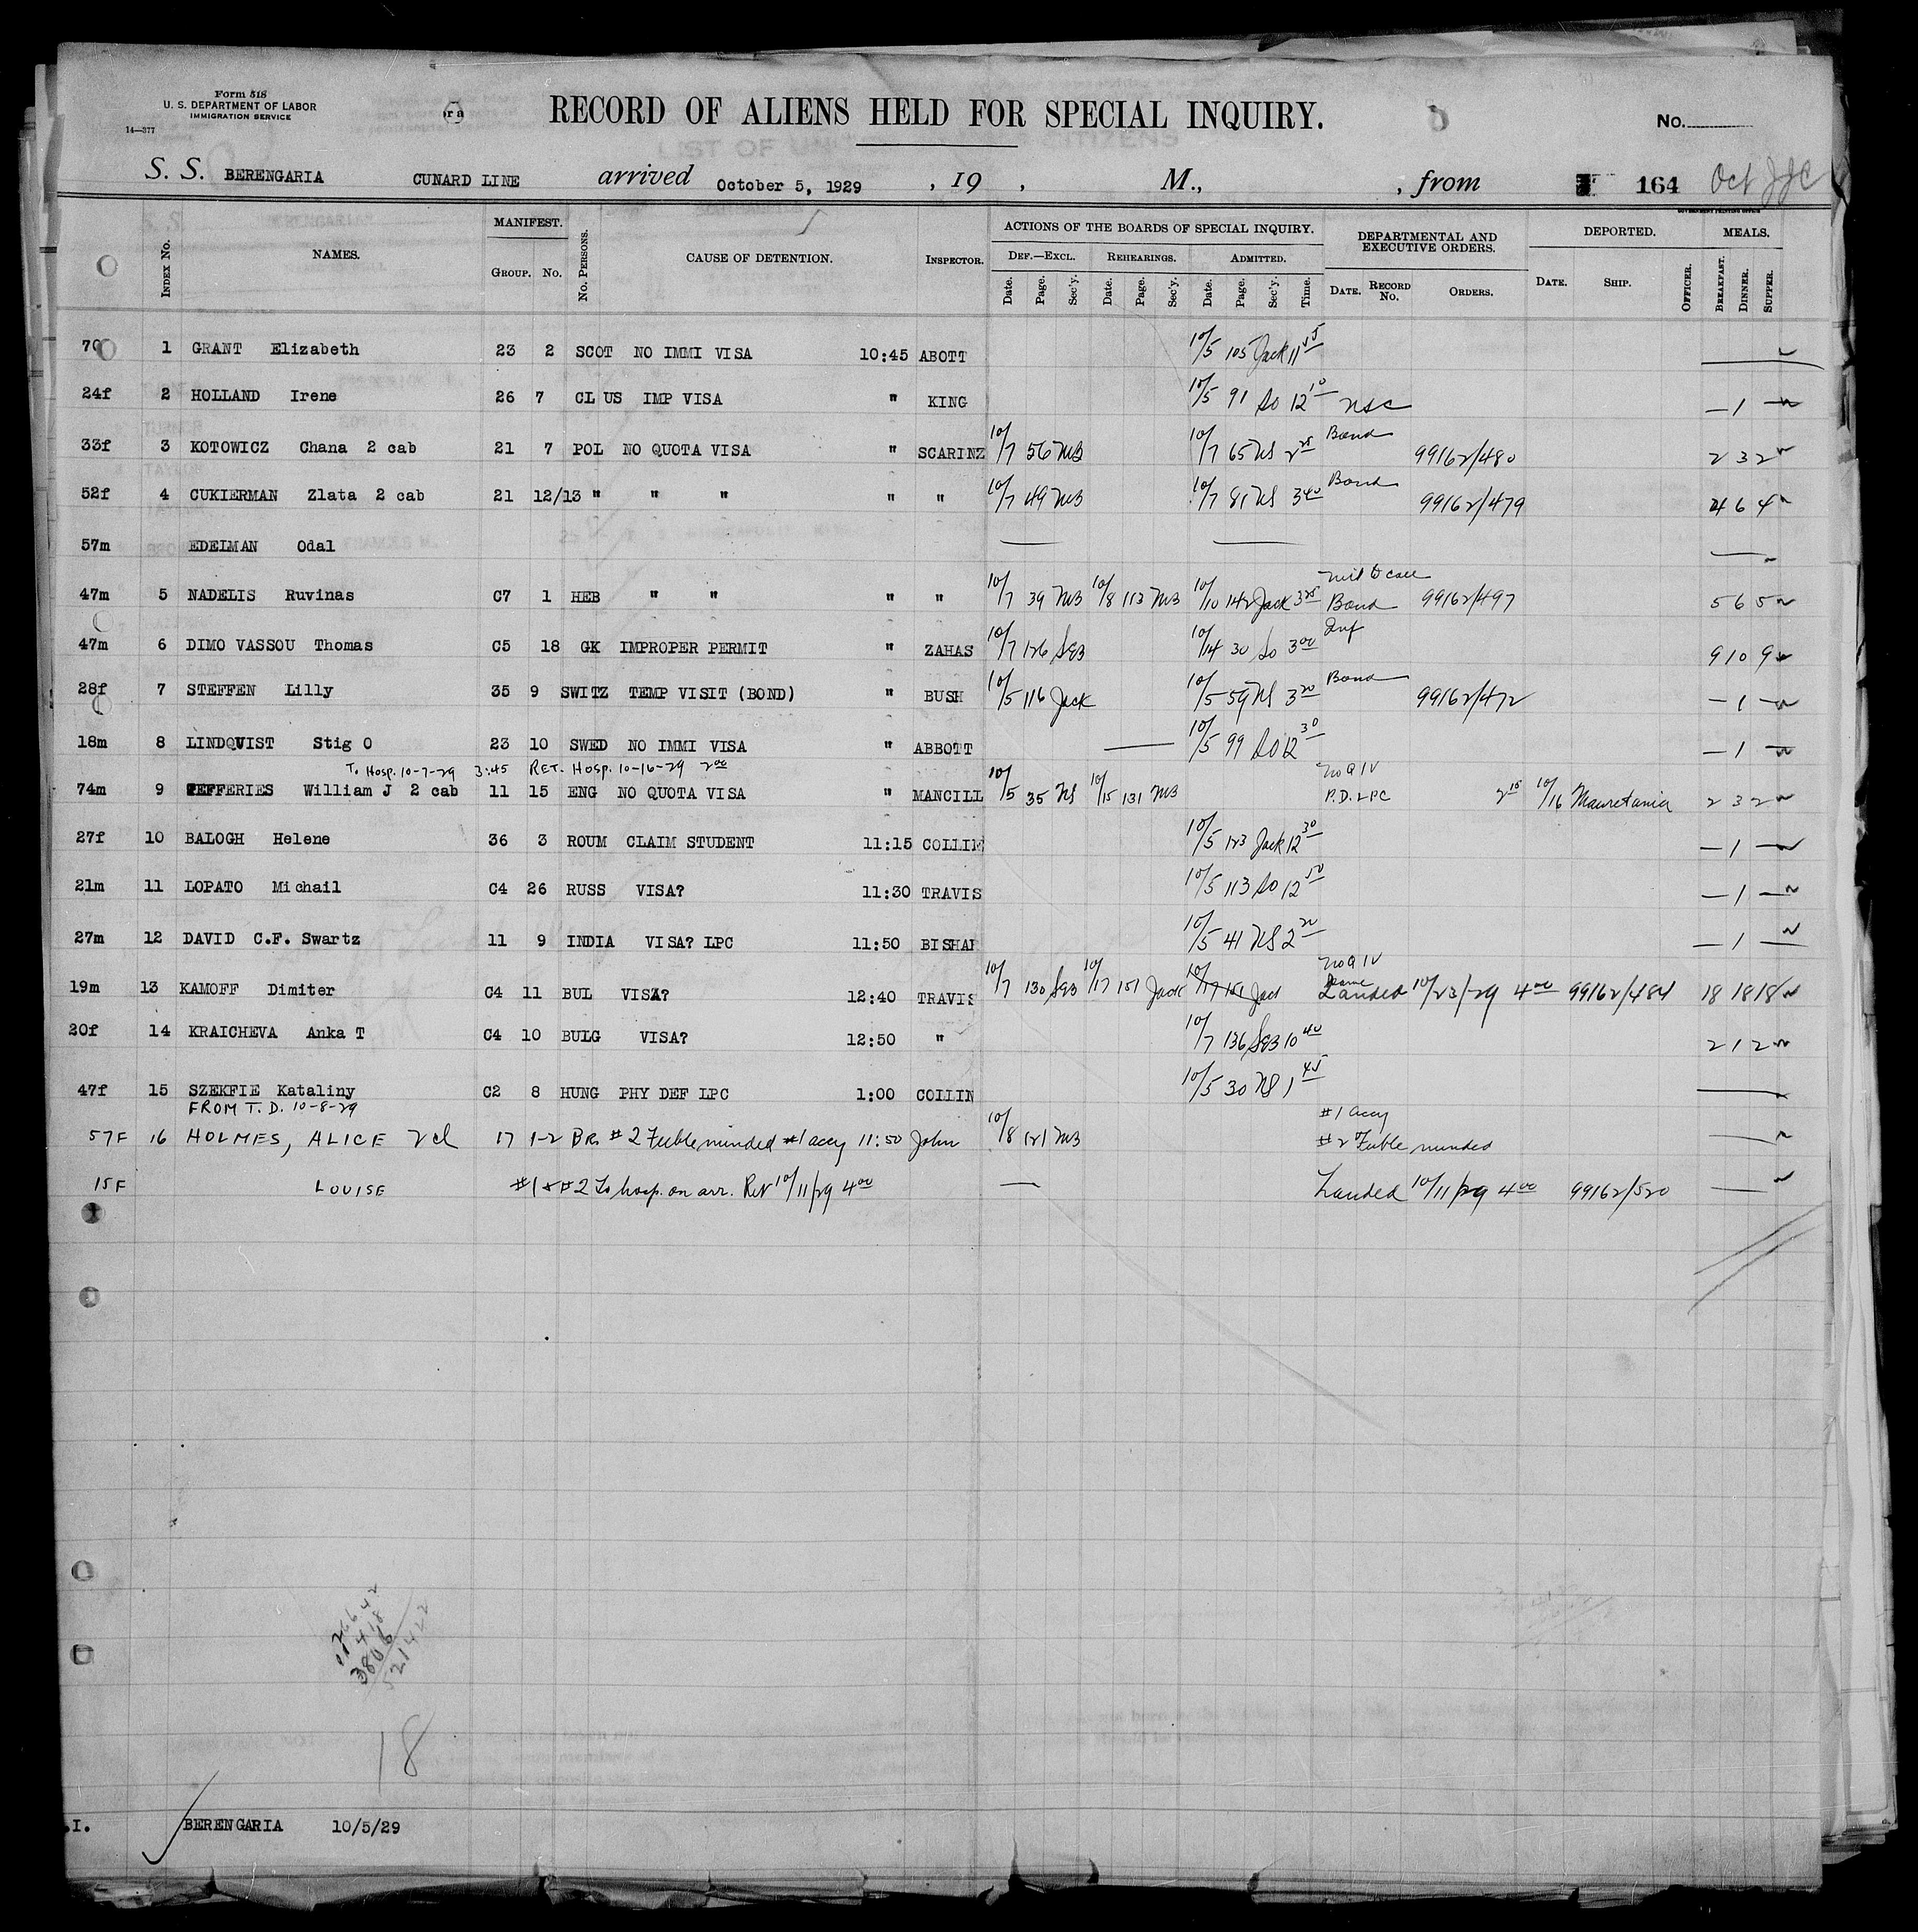 Form 518
U. S. DEPARTMENT OF LABOR
IMMIGRATION SERVICE
14—377
RECORD OF ALIENS HELD FOR SPECIAL INQUIRY.
No.
S. S. BERENGARIA CUNARD LINE arrived October 5, 1929 , 19 , M., , from 164 Oct
GOVERNMENT PRINTING OFFICE
Index No. NAMES. MANIFEST. Group. No. No. Persons. CAUSE OF DETENTION. Inspector. ACTIONS OF THE BOARDS OF SPECIAL INQUIRY. Def.—Excl. Date. Page. Sec'y. Rehearings. Date. Page. Sec'y. Admitted. Date. Page. Sec'y. Time. DEPARTMENTAL AND EXECUTIVE ORDERS. Date. Record No. Orders. DEPORTED. Date. Ship. Officer. MEALS. Breakfast. Dinner. Supper.
1 GRANT Elizabeth 23 2 SCOT NO IMMI VISA 10:45 ABOTT 10/5 105 Jack 11 45
24f 2 HOLLAND Irene 26 7 CL US IMP VISA " KING 10/5 91 So 12 10 nsc — 1 —
33f 3 KOTOWICZ Chana 2 cab 21 7 POL NO QUOTA VISA " SCARINZ 10/7 56 MB 10/7 65 NS 2 25 Bond 99162/480 2 3 2
52f 4 CUKIERMAN Zlata 2 cab 21 12/13 " " " " " 10/7 49 MB 10/7 81 NS 3 40 Bond 99162/479 4 6 4
57m EDELMAN Odal — — —
47m 5 NADELIS Ruvinas C7 1 HEB " " " " 10/7 39 MB 10/8 113 MB 10/10 142 Jack 3 25 Bond 99162/497 5 6 5
47m 6 DIMO VASSOU Thomas C5 18 GK IMPROPER PERMIT " ZAHAS 10/7 126 SGB 10/14 30 So 3 00 Inf 9 10 9
28f 7 STEFFEN Lilly 35 9 SWITZ TEMP VISIT (BOND) " BUSH 10/5 116 Jack 10/5 59 NS 3 20 Bond 99162/472 — 1 —
18m 8 LINDQVIST Stig O 23 10 SWED NO IMMI VISA " ABBOTT — 10/5 99 So 12 30 — 1 —
To Hosp. 10-7-29 3:45 RET. Hosp. 10-16-29 2 00
74m 9 JEFFERIES William J 2 cab 11 15 ENG NO QUOTA VISA " MANCILL 10/5 35 NS 10/15 131 MB No Q I V P.D. LPC 2 15 10/16 Mauretania 2 3 2
27f 10 BALOGH Helene 36 3 ROUM CLAIM STUDENT 11:15 COLLIN 10/5 123 Jack 12 30 — 1 —
21m 11 LOPATO Michail C4 26 RUSS VISA? 11:30 TRAVIS 10/5 113 So 12 50 — 1 —
27m 12 DAVID C.F. Swartz 11 9 INDIA VISA? LPC 11:50 BISHAR 10/5 41 NS 2 20 — 1 —
19m 13 KAMOFF Dimiter C4 11 BUL VISA? 12:40 TRAVIS 10/7 130 SGB 10/17 151 Jack 10/17 151 Jack No Q I V Landed 10/23/29 4 00 99162/484 18 18 18
20f 14 KRAICHEVA Anka T C4 10 BULG VISA? 12:50 " 10/7 136 SGB 10 40 2 1 2
47f 15 SZEKFIE Kataliny C2 8 HUNG PHY DEF LPC 1:00 COLLIN 10/5 30 NS 1 45
FROM T. D. 10-8-29
57F 16 HOLMES, ALICE 2cl 17 1-2 BR. #2 Feebleminded #1 accy 11:50 John 10/8 121 MB #1 accy #2 Feeble minded
15F LOUISE #1 & #2 To hosp. on arr. Ret 10/11/29 4 00 — Landed 10/11/29 4 00 99162/520
418
3806
52142
18
.I. BERENGARIA 10/5/29